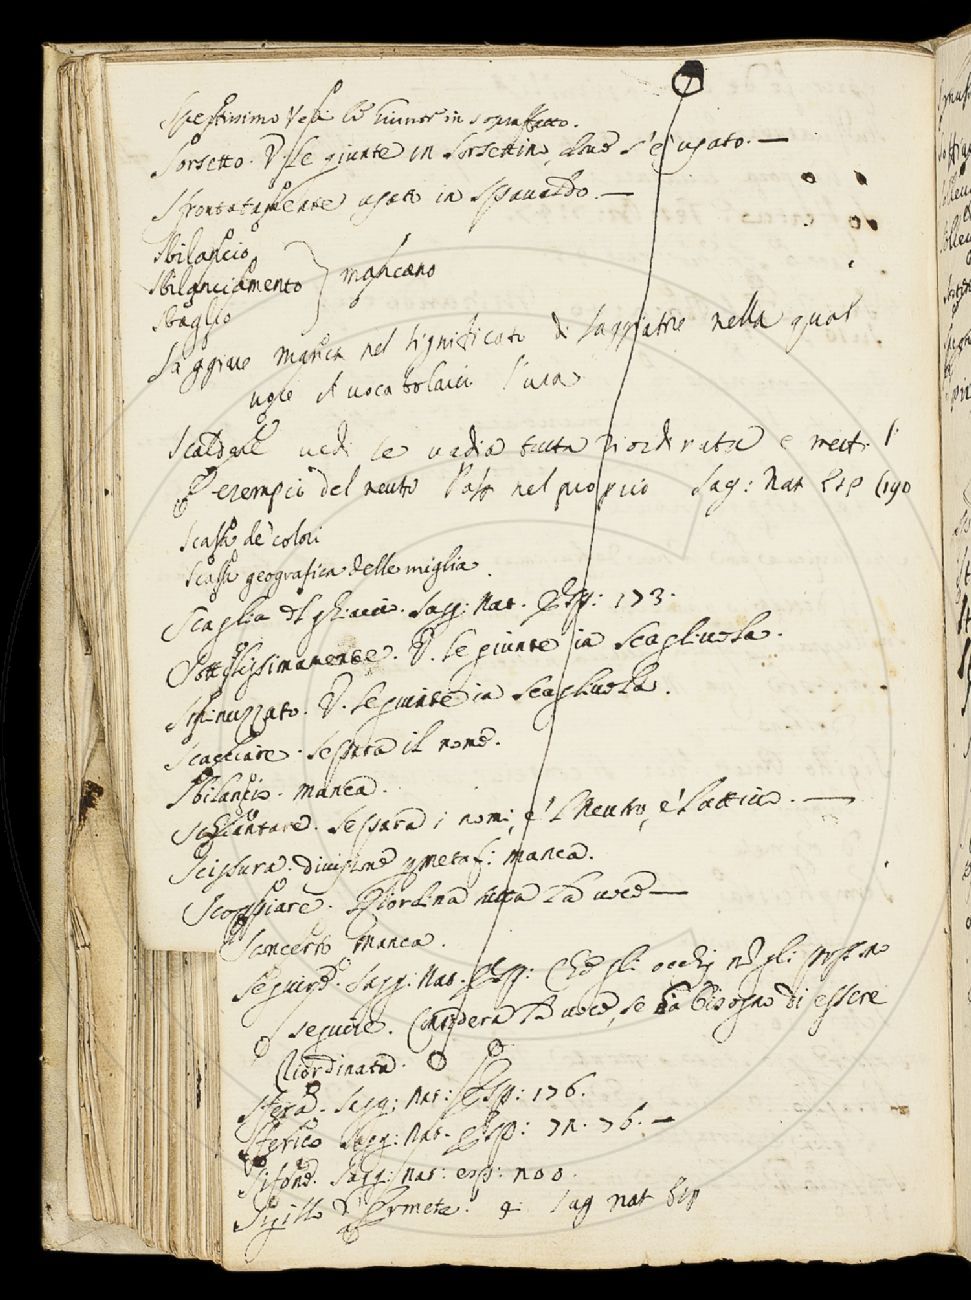 Spessissimo Vedi in soprassetto.
Sorsetto. V. le giunte in Sorsettino, dove s'è usato. —
Sfrontatamente usato in Spavaldo. —
Sbilancio
Sbilanciamento } mancano
Sbaglio
Saggiare manca nel significato di saggiatore nella qual
il vocabolario l'usa
Scaldare vedi se vadia tutta riordinata e mett. l'
esempio del neutr. Pass nel proprio Sag: Nat Esp 190
Scala de colori
Scala geografica delle miglia
Scaglia di ghiaccio. Sagg: Nat. Esp: 173.
Sottilissimamente. V. le giunte in Scagliuola.
Sminuzzato. V. le giunte in Scagliuola.
Scagliare. separa il nome.
Sbilancio. manca.
Schiantare. separa i nomi, e 'l Neutro, e l'attivo. —
Scissura. divisione p metaf: manca.
Scoppiare. Riordina tutta la voce —
Sconcerto manca.
Seguire. Sagg: Nat. Esp: Che gli occhi non gli posson
seguire. Considera la voce, se ha bisogno di essere
riordinata.
Sfera. Sagg: Nat: Esp: 176.
Sferico Sagg: Nat. Esp: 72. 76. —
Sifone. Sagg: Nat: esp: 200.
Sigillo d'Ermete. Sag nat Esp